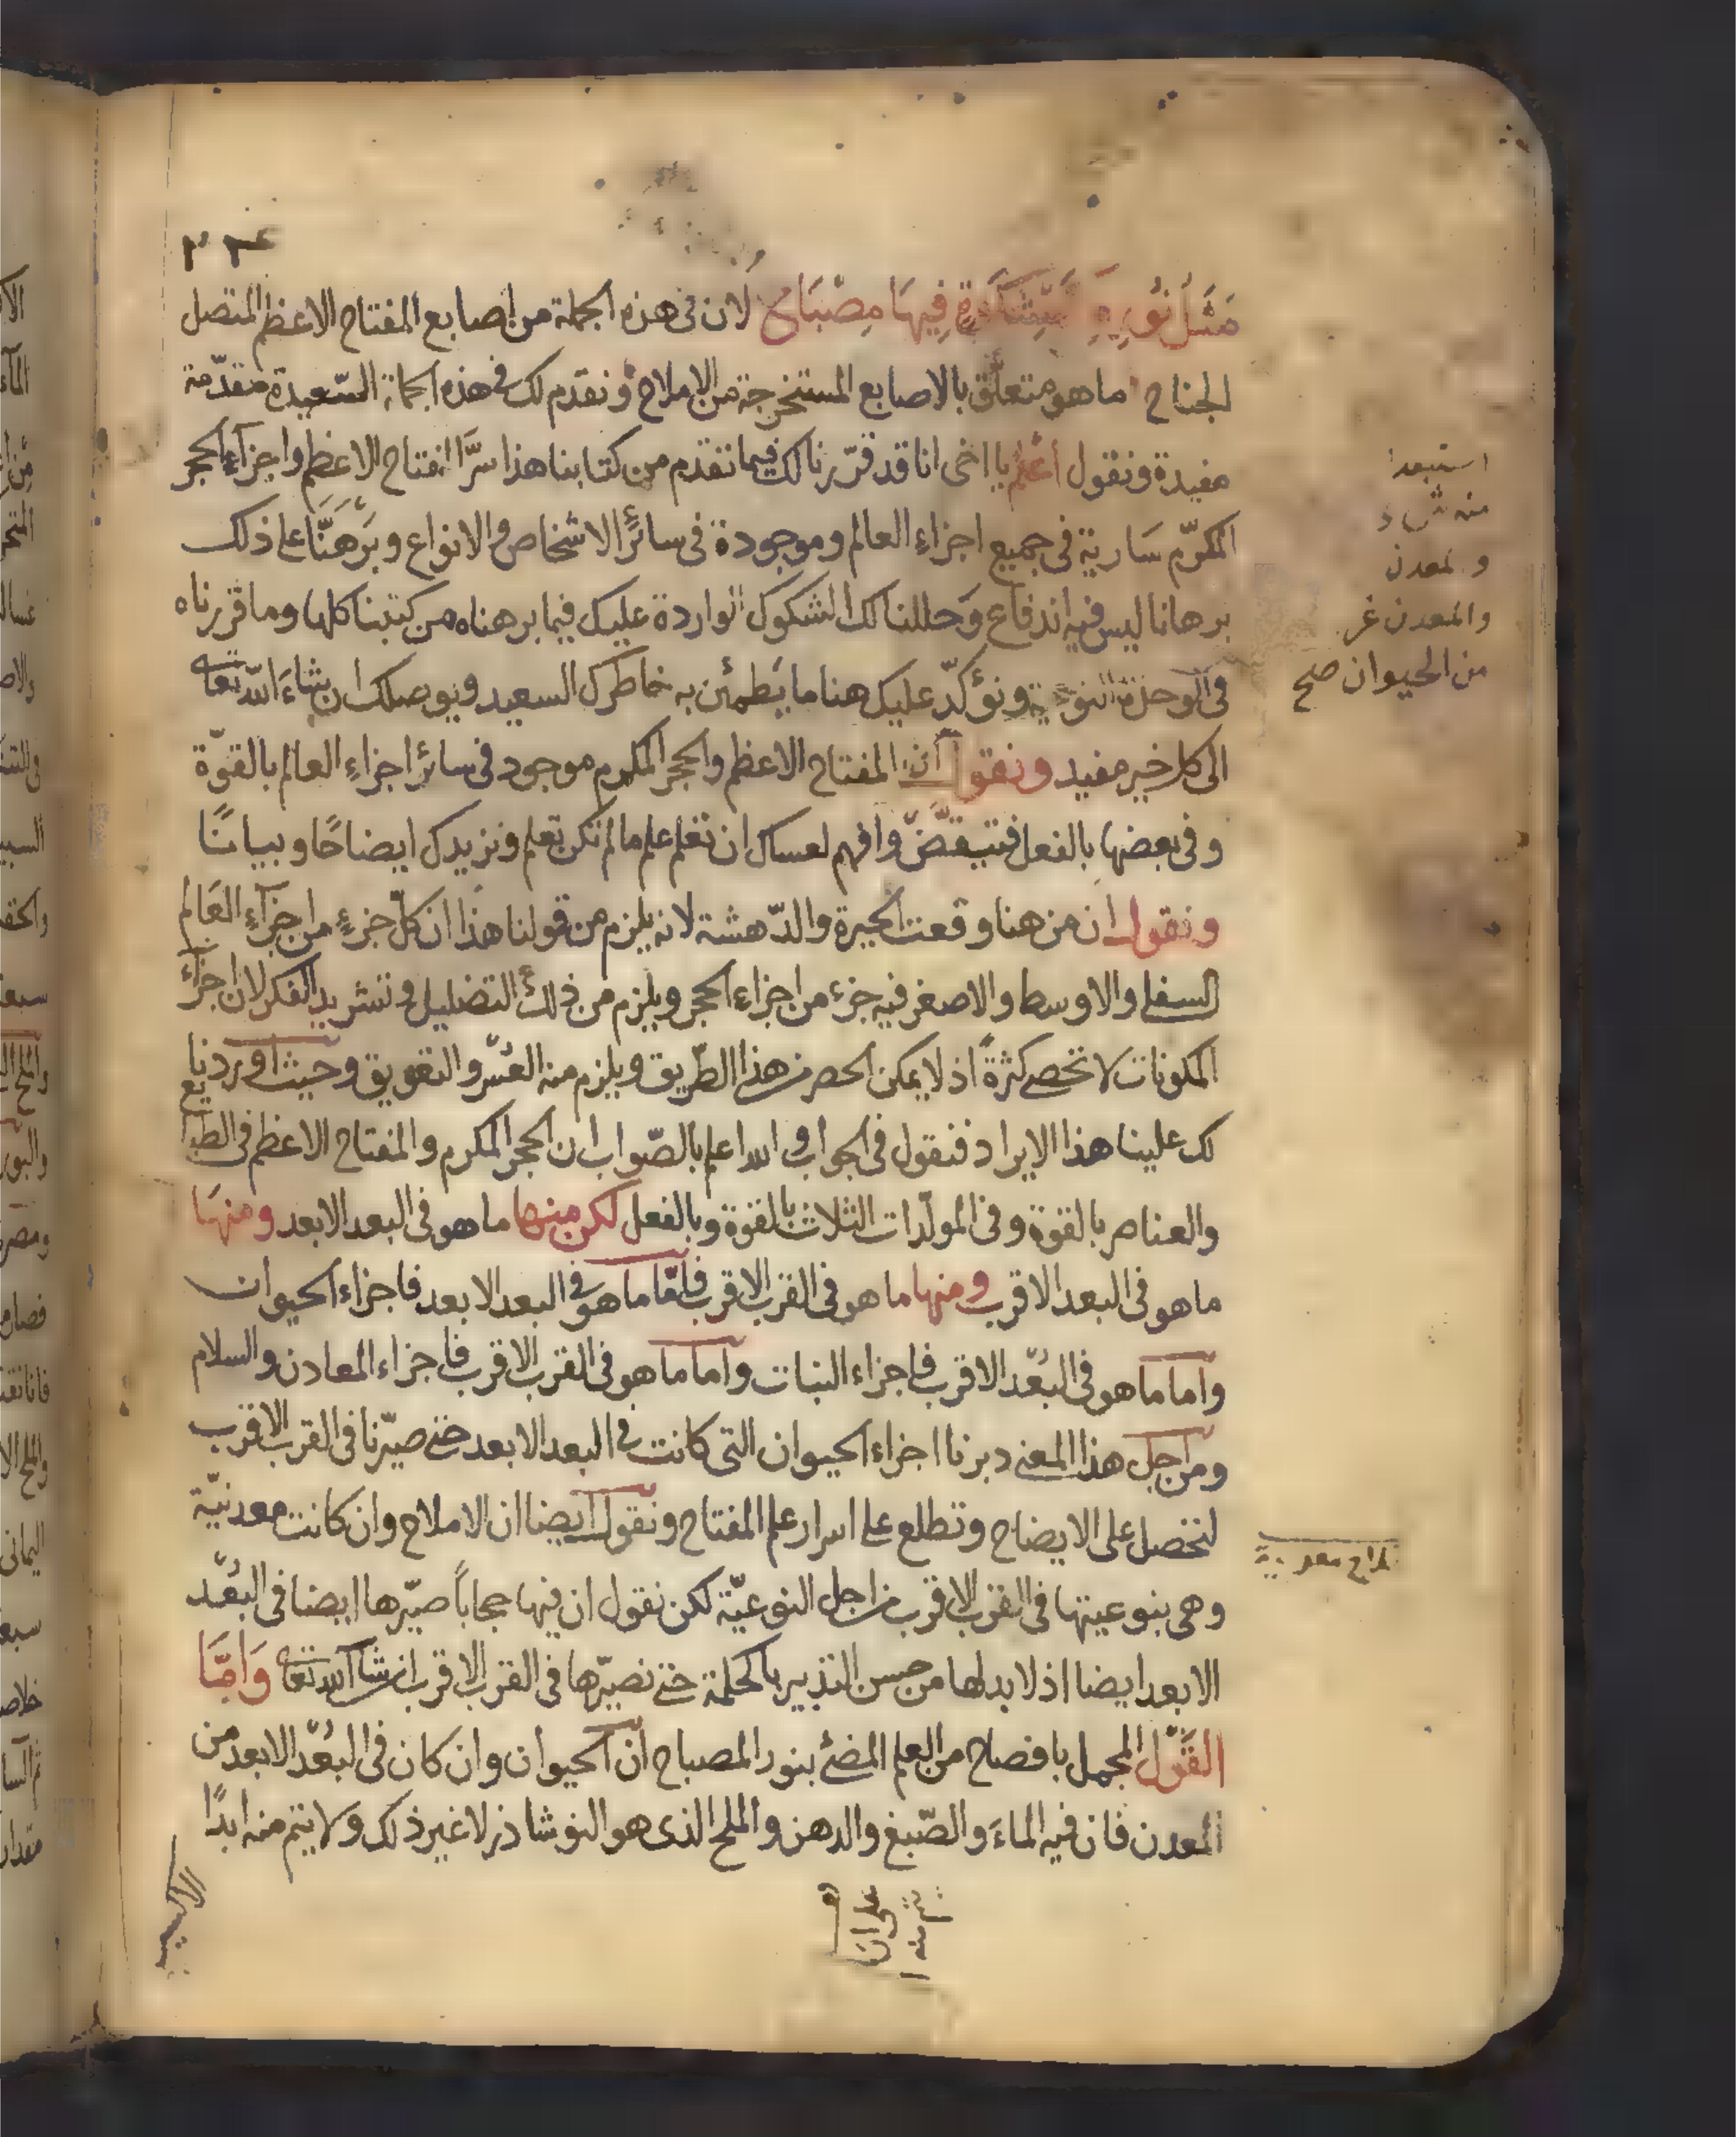 مَثَلُ نُورِهِ كَمِشْكَاةٍ فِيهَا مِصْبَاحٌ لان فى هذه الجملة من اصابع المفتاح الاعظم المتصل
الجناح ما هو متعلّق بالاصابع المستخرجة من الاملاح ونقدم لك فى هذه الجملة السّعيدة مقدّمة
مفيدة ونقول اعلم يا اخى انا قد قرّرنا لك فيما تقدم من كتابنا هذا سرَّ المفتاح الاعظم واجزآء الحجر
المكرّم سَارية فى جميع اجزاءِ العالم وموجودة فى سائر الاشخاص والانواع وبَرْهَنَّا على ذلك
برهانا ليس فيه اندفاع وَحللنا لك الشكوك الواردة عليك فيما برهناه من كتبنا كلها وما قررناه
فى الوحدة النوعية ونؤكّد عليك هنا ما يَطمئن به خاطرك السعيد ويوصلك ان شاءَ اللّه تعا
الى كل خير مفيد ونقول ان المفتاح الاعظم والحجر المكرم موجود فى سائر اجزاءِ العالم بالقوّة
وفى بعضها بالفعل فتيقّض وافهم لعساك ان تعلم علم ما لم تكن تعلم ونزيدك ايضاحًا وبيانًا
ونقول ان من هنا وقعت الحيرة والدّهشة لانه يلزم من قولنا هذا ان كلّ جزءٍ من اجزآءِ العَالم
السفلى والاوسط والاصغر فيه جزء من اجزاءِ الحجر ويلزم من ذلك التضليل وتشريد الفكر لان اجزآء
المكونات لا تحصى كثرةً اذ لا يمكن الحصر من هذا الطّريق ويلزم منه العُسْر والتعويق وحيث اوردنا
لك علينا هذا الايراد فنقول فى الجواب والله اعلم بالصّواب ان الحجر المكرم والمفتاح الاعظم فى الطبايع
والعناصر بالقوة وفى المولّدات الثلاث بالقوة وبالفعل لكن منها ما هو فى البعد الابعد ومنهَا
ما هو فى البعد الاقرب ومنها ما هو فى القرب الاقرب فامّا ما هو فى البعد الابعد فاجزاء الحيوان
واما ما هو فى البُعْد الاقرب فاجزاء النبات واما ما هو فى القرب الاقرب فاجزاء المعادن والسلام
ومن اجل هذا المعنى دبرنا اجزاء الحيوان التى كانت فى البعد الابعد حتى صيّرنا فى القرب الاقرب
لتحصل على الايضاح وتطلع على اسرار علم المفتاح ونقول ايضا ان الاملاح وان كانت معدنيّة
وهى بنوعيتها فى القرب الاقرب من اجل النوعيّة لكن نقول ان فيها حجاباً صيّرها ايضا فى البُعْد
الابعد ايضا اذ لا بد لها من حسن التدبير بالحكمة حتى نصيّرها فى القرب الاقرب ان شآ اللّه تعا وَامَّا
القَوْل المجمل بافصاح من العلم المضئ بنور المصباح ان الحيوان وان كان فى البُعْد الابعد من
المعدن فان فيه الماءَ والصّبغ والدهن والملح الذى هو النوشاذر لا غير ذلك ولا يتم منه ابدًا
الاكسير
استبعد
منه
والمعدن
والمعدن غير
من الحيوان صح
املاح معدنية
على ان
منه